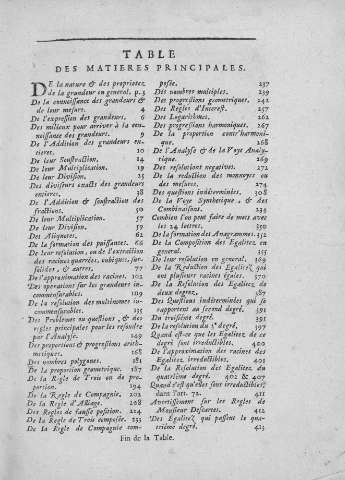 TABLE
DES MATIERES PRINCIPALES.
DE la nature & des proprietez
de la grandeur en general. p. 3
De la connoissance des grandeurs &
de leur mesure. 4
De l'expression des grandeurs. 6
Des milieux pour arriver à la con-
noissance des grandeurs. 9
De l'Addition des grandeurs en-
tieres. 10
De leur Soustraction. 14
De leur Multiplication. 19
De leur Division. 25
Des diviseurs exacts des grandeurs
entieres. 38
De l'Addition & soustraction des
fractions. 50
De leur Multiplication. 57
De leur Division. 59
Des Aliquotes. 62
De la formation des puissances. 66
De leur resolution, ou de l'extraction
des racines quarrées, cubiques, sur-
solides, & autres. 77
De l'approximation des racines. 102
Des operations sur les grandeurs in-
commensurables. 119
De la resolution des multinomes in-
commensurables. 135
Des Problêmes ou questions, & des
regles principales pour les resoudre
par l'Analyse. 149
Des proportions & progressions arith-
metiques. 168
Des nombres polygones. 181
De la proportion geometrique. 187
De la Regle de Trois ou de pro-
portion. 194
De la Regle de Compagnie. 202
De la Regle d'Alliage. 208
Des Regles de fausse position. 214
De la Regle de Trois composée. 233
De la Regle de Compagnie com-
posée. 237
Des nombres multiples. 239
Des progressions geometriques. 242
Des Regles d'Interest. 257
Des Logarithmes. 262
Des progressions harmoniques. 267
De la proportion contr'harmoni-
que. 268
De l'Analyse & de la Voye Analyti-
que. 269
Des resolutions negatives. 272
De la reduction des monnoyes ou
des mesures. 274
Des questions indeterminées. 308
De la Voye Synthetique, & des
Combinaisons.
Combien l'on peut faire de mots avec
les 24 lettres. 350
De la formation des Anagrammes. 352
De la Composition des Egalitez en
general. 355
De leur resolution en general. 369
De la Reduction des Egalitez qui
ont plusieurs racines égales. 370
De la Resolution des Egalitez du
deux degrez. 387
Des Questions indeterminées qui se
rapportent au second degré. 391
Du troisiéme degré. 395
De la resolution du 3e degré. 397
Quand est-ce que les Egalitez de ce
degré sont irreductibles. 400
De l'approximation des racines des
Egalitez irreductibles. 401
De la Resolution des Egalitez du
quatriéme degré. 402 & 407
Quand est-ce qu'elles sont irreductibles
dans l'art. 72. 411
Avertissement sur les Regles de
Monsieur Descartes. 412
Des Egalitez qui passent le qua-
triéme degré. 423
Fin de la Table.